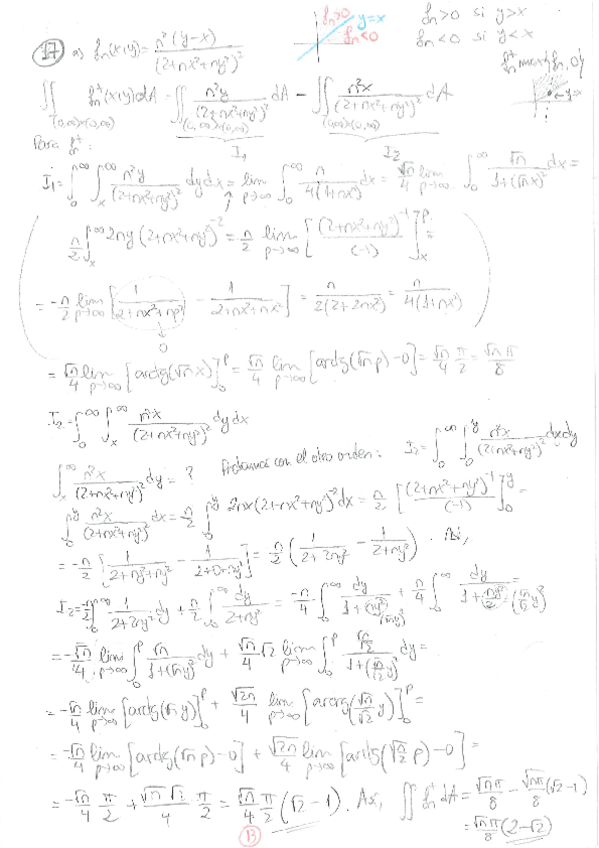 17 a) fn(x,y) = n²(y-x) / (2+nx²+ny²)²
fn>0 y=x fn<0
fn>0 si y>x
fn<0 si y<x
fn⁺ = max{fn, 0}
∬_{(0,∞)×(0,∞)} fn⁺(x,y)dA = ∬_{(0,∞)×(0,∞)} n²y/(2+nx²+ny²)² dA - ∬_{(0,∞)×(0,∞)} n²x/(2+nx²+ny²)² dA
I₁ I₂
Para fn⁺:
I₁ = ∫₀^∞ ∫ₓ^∞ n²y/(2+nx²+ny²)² dy dx = lim_{p→∞} ∫₀^∞ n/4(1+nx²) dx = √n/4 lim_{p→∞} ∫₀^∞ √n/1+(√n x)² =
n/2 ∫ₓ^∞ 2ny(2+nx²+ny²)⁻² = n/2 lim_{p→∞} [(2+nx²+ny²)⁻¹/(-1)]ₓ^p =
= -n/2 lim_{p→∞} [1/2+nx²+np² - 1/2+nx²+nx²] = n/2(2+2nx²) = n/4(1+nx²)
0
= √n/4 lim_{p→∞} [arctg(√n x)]₀^p = √n/4 lim_{p→∞} [arctg(√n p)-0] = √n/4 π/2 = √n π/8
I₂ = ∫₀^∞ ∫ₓ^∞ n²x/(2+nx²+ny²)² dy dx
∫ₓ^∞ n²x/(2+nx²+ny²)² dy = ? Probamos con el otro orden: I₂ = ∫₀^∞ ∫₀^y n²x/(2+nx²+ny²)² dx dy
∫₀^y n²x/(2+nx²+ny²)² dx = n/2 ∫₀^y 2nx(2+nx²+ny²)⁻² dx = n/2 [(2+nx²+ny²)⁻¹/(-1)]₀^y =
= -n/2 [1/2+ny²+ny² - 1/2+0+ny²] = -n/2 (1/2+2ny² - 1/2+ny²). Así,
I₂ = -n/2 ∫₀^∞ 1/2+2ny² dy + n/2 ∫₀^∞ dy/2+ny² = -n/4 ∫₀^∞ dy/1+ny² + n/4 ∫₀^∞ dy/1+ny²/2 =
= -√n/4 lim_{p→∞} ∫₀^p √n/1+(√n y)² dy + √n/4 √2 lim_{p→∞} ∫₀^p √n/√2 / 1+(√n/√2 y)² dy =
= -√n/4 lim_{p→∞} [arctg(√n y)]₀^p + √2n/4 lim_{p→∞} [arctg(√n/√2 y)]₀^p =
= -√n/4 lim_{p→∞} [arctg(√n p)-0] + √2n/4 lim_{p→∞} [arctg(√n/2 p)-0] =
= -√n/4 π/2 + √n √2/4 · π/2 = √n/4 π/2 (√2-1). Así, ∬ fn⁺ dA = √n π/8 - √n π/8 (√2-1)
= √n π/8 (2-√2)
13